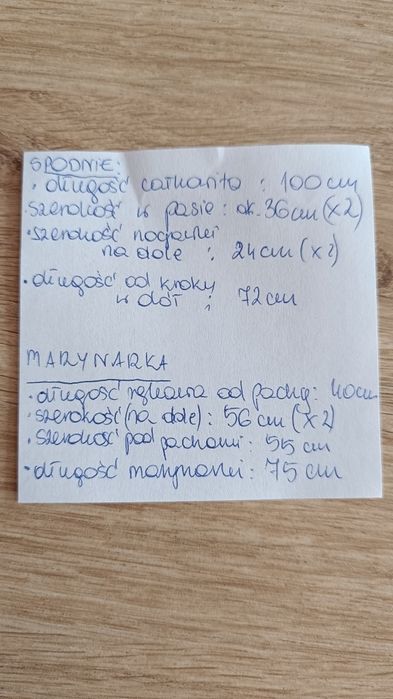 SPODNIE:
• długość całkowita : 100 cm
• szerokość w pasie : ok. 36 cm (x2)
• szerokość nogawki
na dole : 24 cm (x2)
• długość od kroku
w dół : 72 cm
MARYNARKA
• długość rękawa od pachy: 40cm
• szerokość (na dole) : 56 cm (x2)
• szerokość pod pachami : 55 cm
• długość marynarki : 75 cm